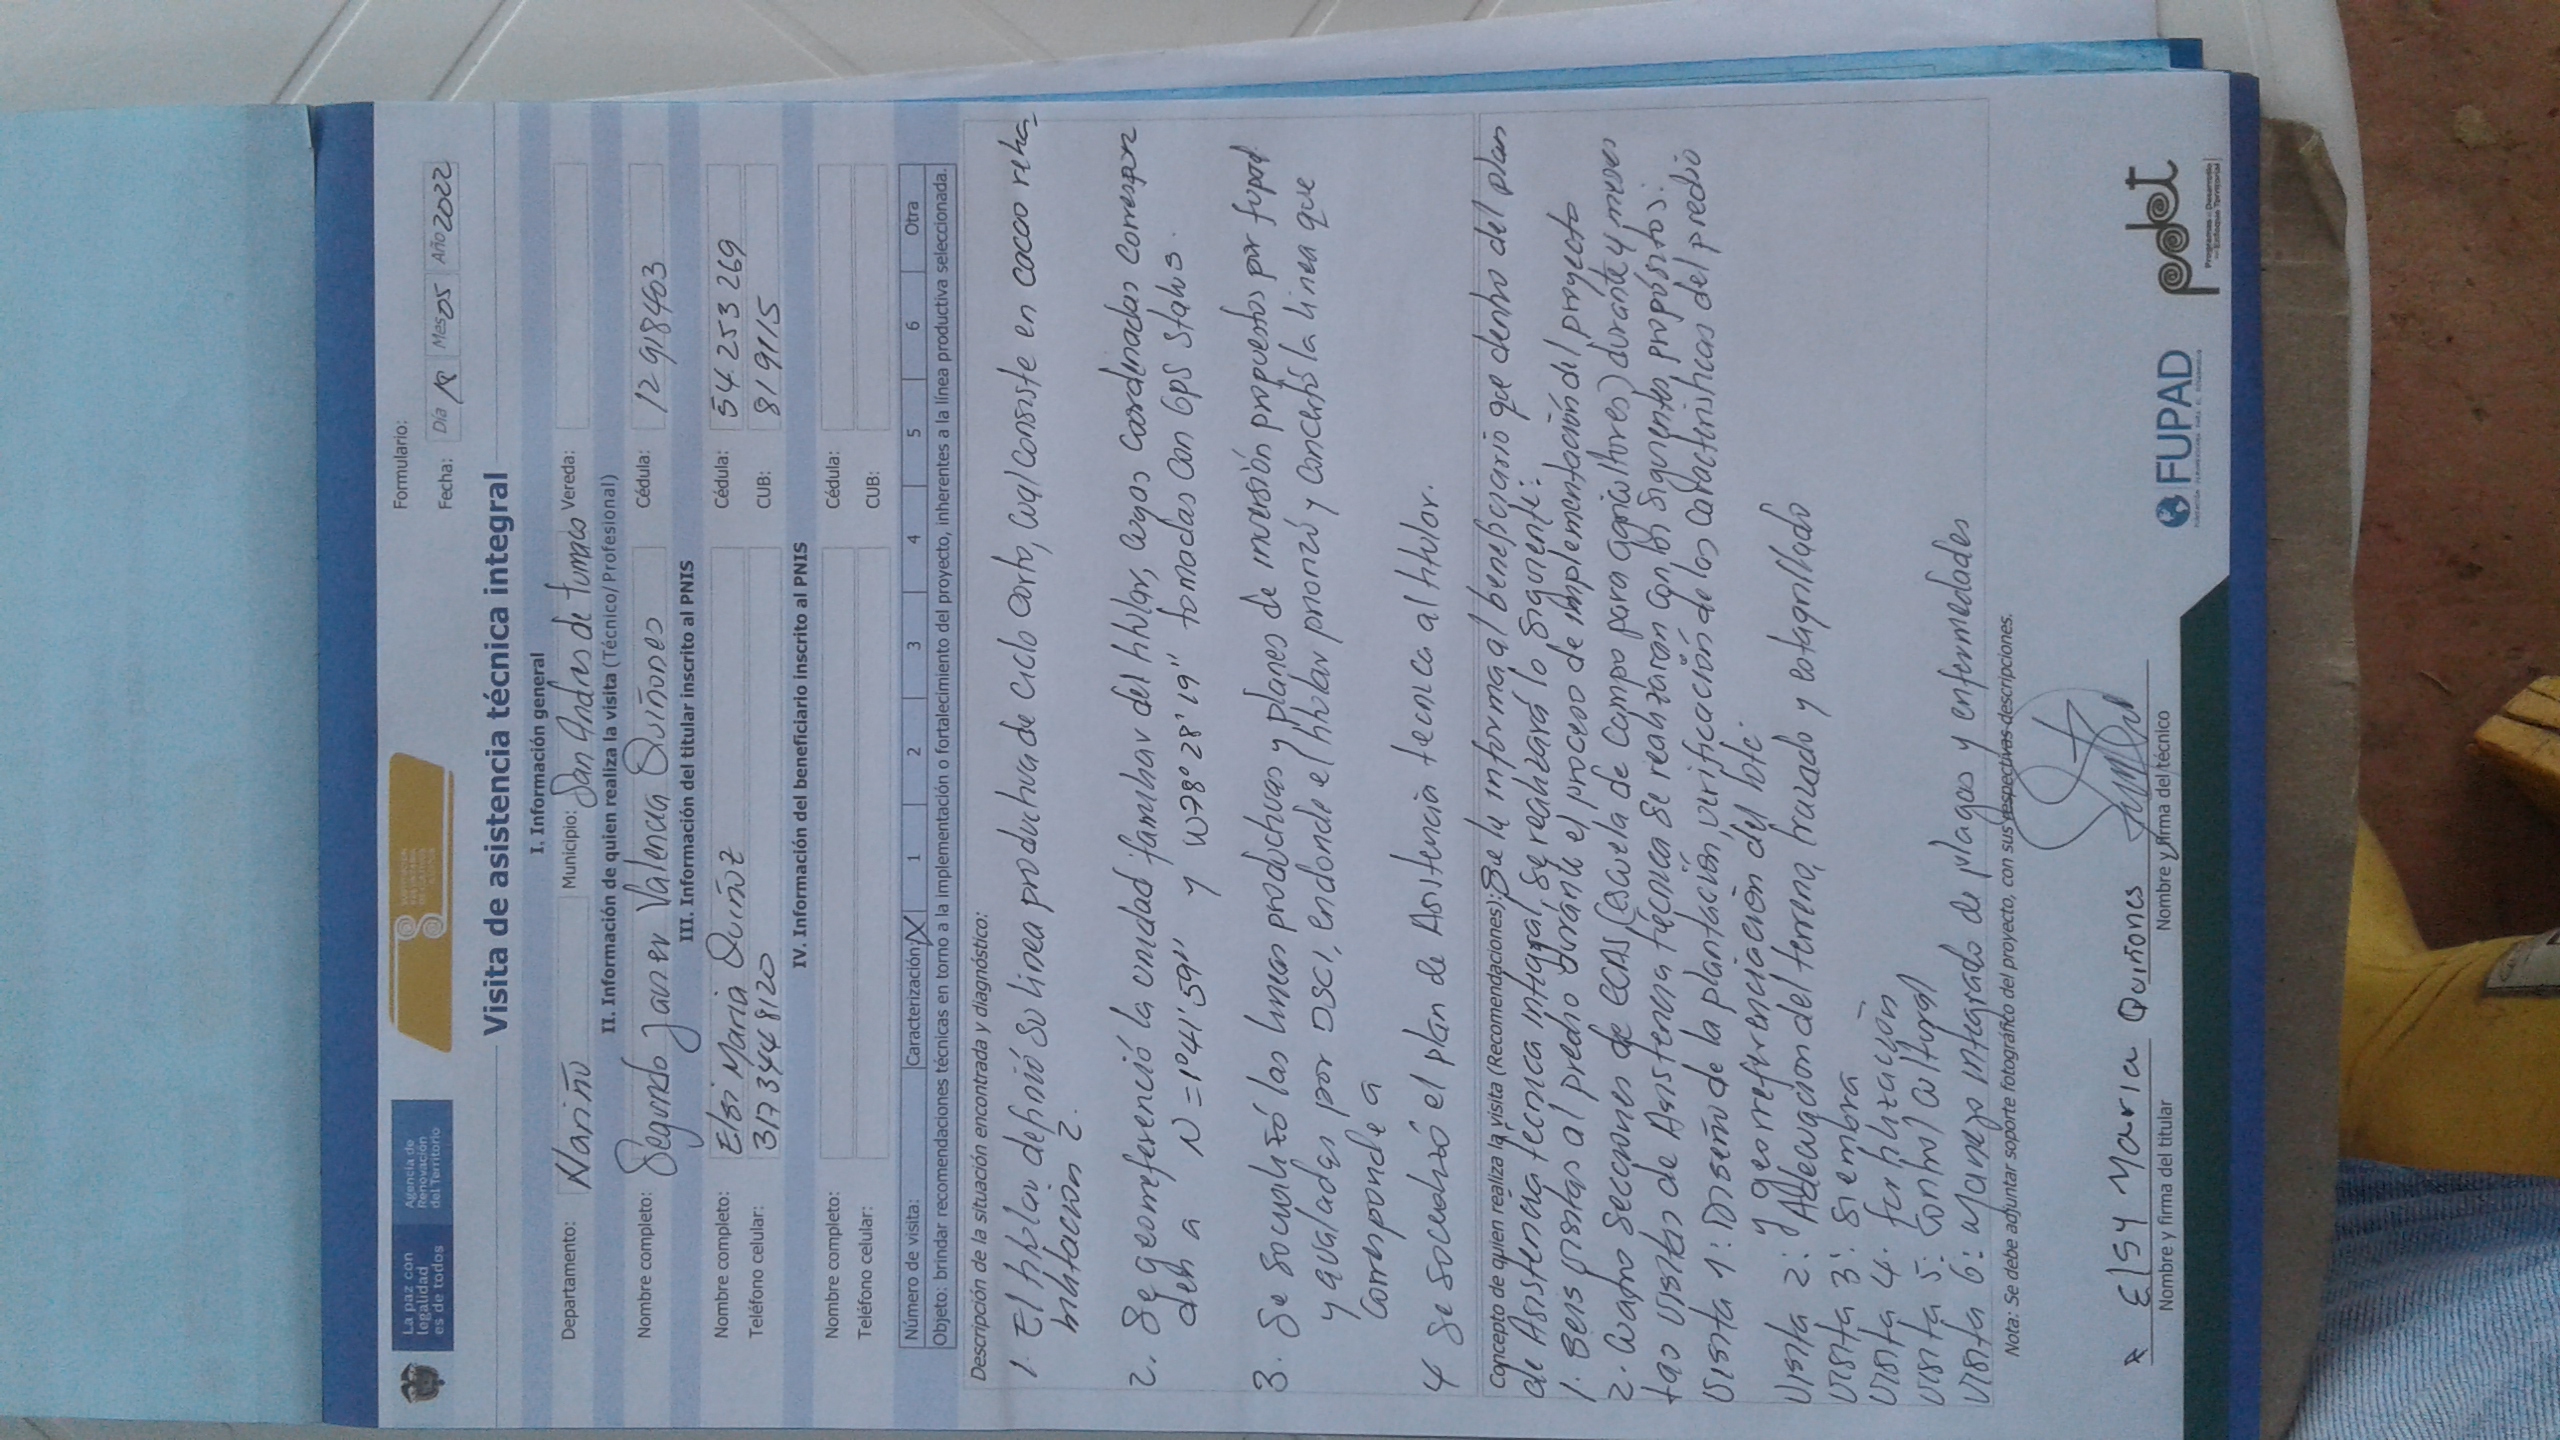 La paz con
legalidad
es de todos
Agencia de
Renovación
del Territorio
Formulario:
Fecha: Día Mes 05 Año 2022
Visita de asistencia técnica integral
I. Información general
Departamento: Nariño Municipio: San Andres de Tumaco Vereda:
II. Información de quien realiza la visita (Técnico/Profesional)
Nombre completo: Segundo Janer Valencia Quiñones Cédula: 12 918403
III. Información del titular inscrito al PNIS
Nombre completo: Elsi Maria Quiñoz Cédula: 54.253 269
Teléfono celular: 3173448120 CUB: 819115
IV. Información del beneficiario inscrito al PNIS
Nombre completo: Cédula:
Teléfono celular: CUB:
Número de visita: Caracterización X 1 2 3 4 5 6 Otra
Objeto: brindar recomendaciones técnicas en torno a la implementación o fortalecimiento del proyecto, inherentes a la línea productiva seleccionada.
Descripción de la situación encontrada y diagnóstico:
1. El titular definió su linea productiva de ciclo corto, cual consiste en cacao reha-
bilitación 2.
2. Se georreferenció la unidad familiar del titular, cuyas coordinadas correspon
den a N = 1°41'59" y W78°28'19" tomadas con GPS Status.
3. Se socializó las lineas productivas y planes de inversión propuestos por fupad
y avalados por DSCI, endonde el titular priorizó y concertó la linea que
corresponde a
4 Se socializó el plan de Asistencia tecnica al titular.
Concepto de quien realiza la visita (Recomendaciones): Se le informa al beneficiario que dentro del plan
de Asistencia tecnica integral, se realizará lo siguiente:
1. Seis visitas al predio durante el proceso de implementación del proyecto
2. Cuatro secciones de ECAS (escuela de campo para agricultores) durante 4 meses
tas visitas de Asistencia técnica se realizaran con los siguientes propósitos:
Visita 1: Diseño de la plantación, verificación de las caracteristicas del predio
y georreferenciación del lote.
Visita 2: Adecuación del terreno, trazado y estaquillado
Visita 3: Siembra
Visita 4. fertilización
Visita 5: Control cultural
Visita 6: Manejo integrado de plagas y enfermedades
Nota: Se debe adjuntar soporte fotográfico del proyecto, con sus respectivas descripciones.
x Elsy Maria Quiñones
Nombre y firma del titular
Nombre y firma del técnico
FUPAD
pdet
Programas de Desarrollo
con Enfoque Territorial